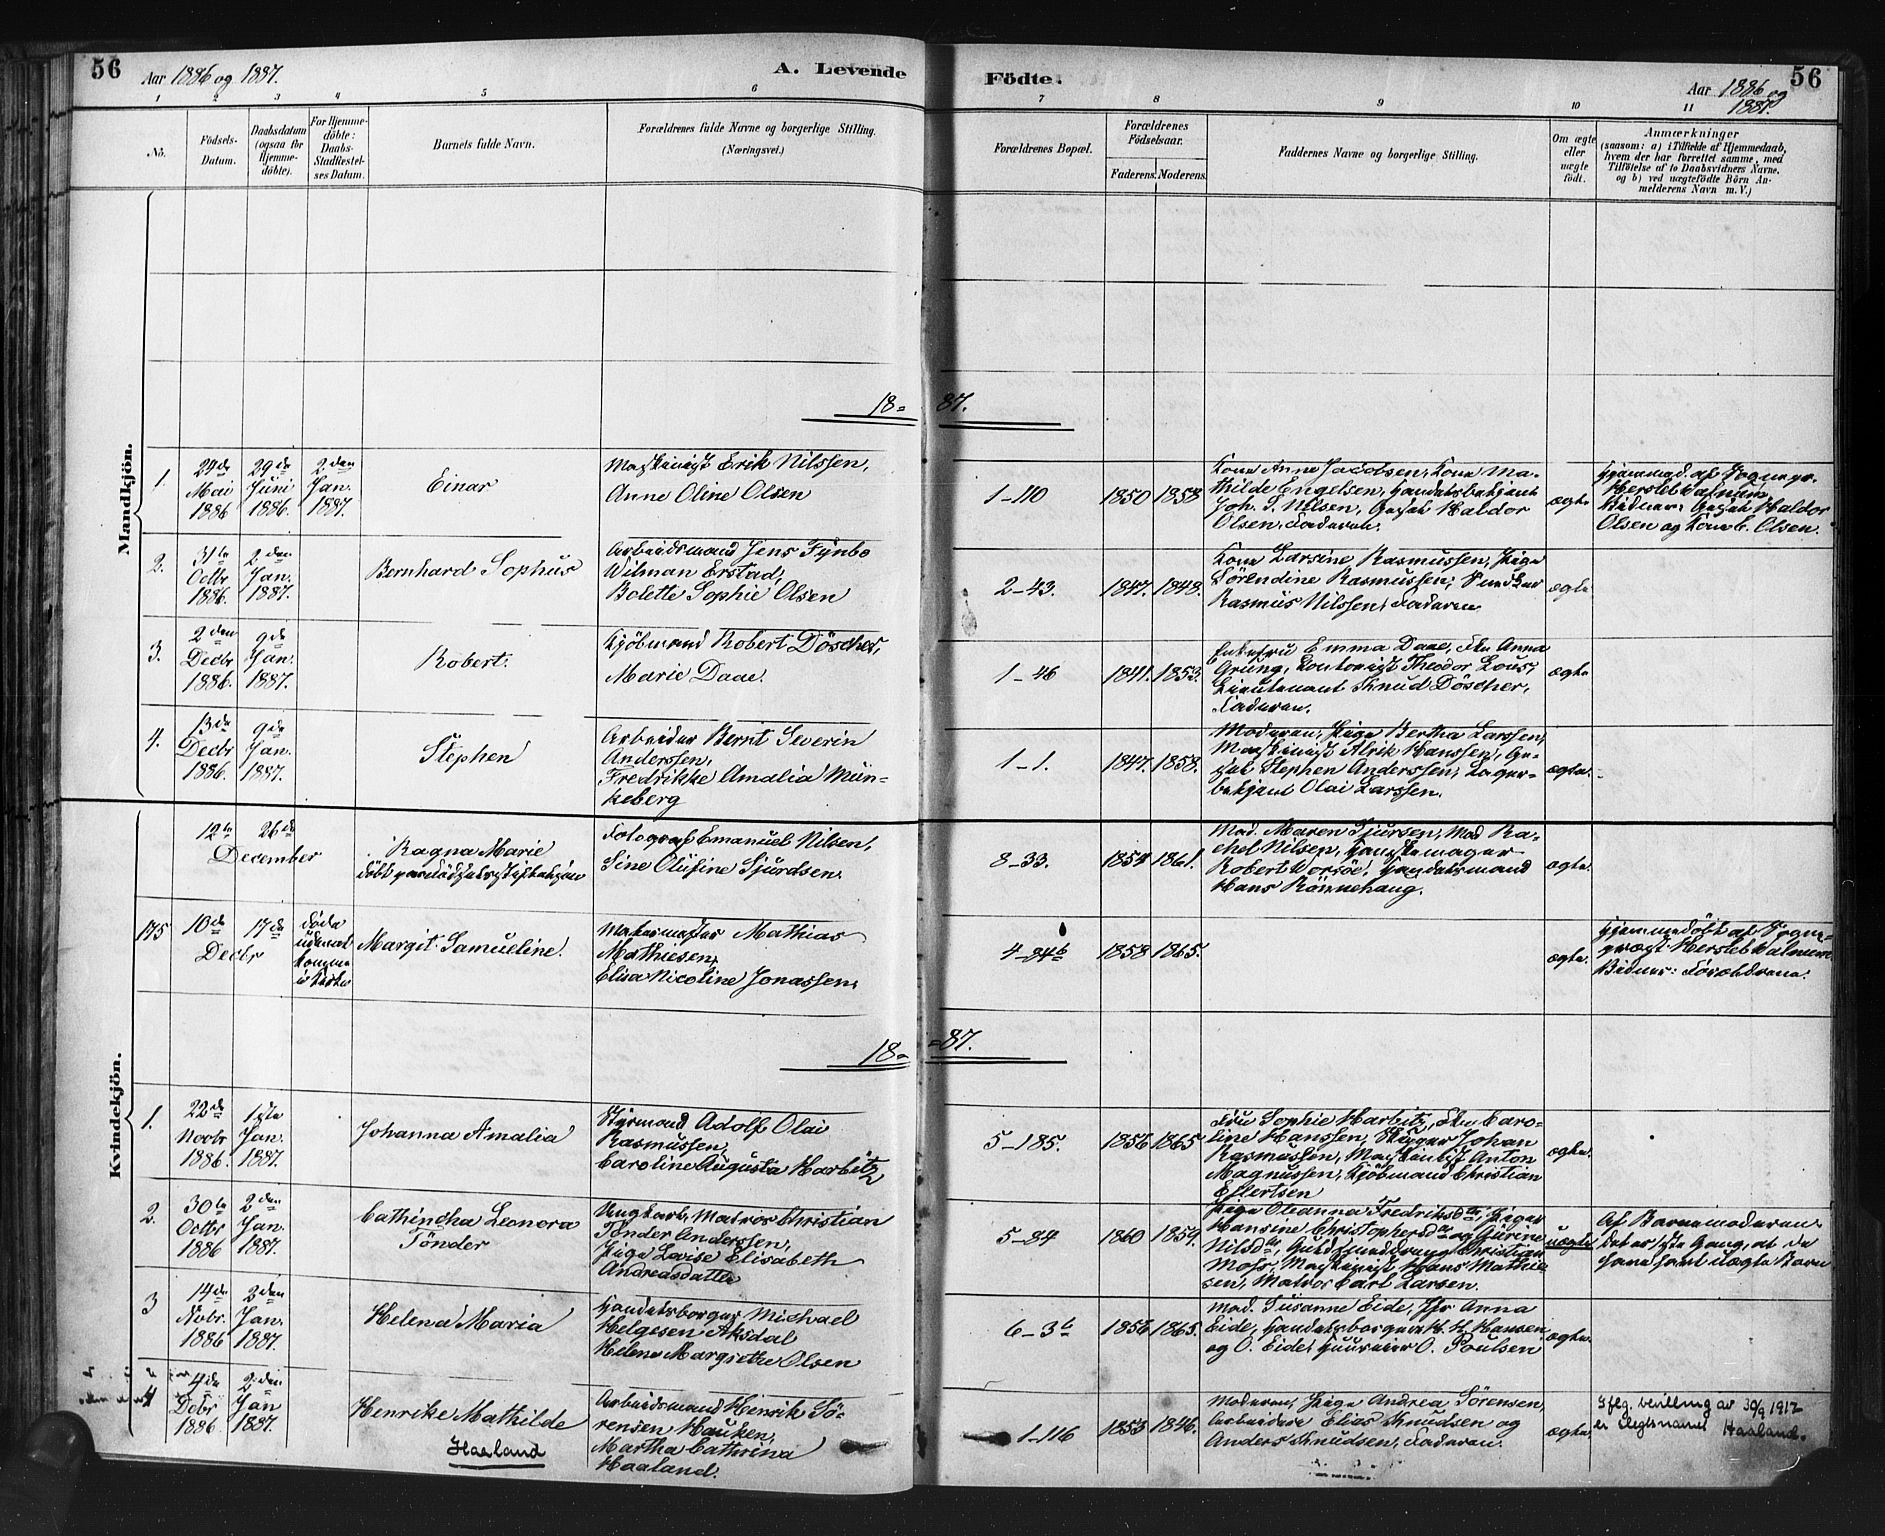 56
Aar 1886 og 1887.
A. Levende
Födte.
Aar 1886 og
1887.
56
1 2 3 4 5 6 7 8 9 10 11
No.
Födsels-
Datum.
Daabsdatum
(ogsaa for
Hjemme-
döbte).
For Hjemme-
döbte:
Daabs-
Stadfæstel-
ses Datum.
Barnets fulde Navn.
Forældrenes fulde Navne og borgerlige Stilling.
(Næringsvei.)
Forældrenes Bopæl.
Forældrenes
Födselsaar.
Faderens. Moderens.
Faddernes Navne og borgerlige Stilling.
Om ægte
eller
uægte
födt.
Anmærkninger
(saasom: a) i Tilfælde af Hjemmedaab,
hvem der har forrettet samme, med
Tilföielse af to Daabsvidners Navne,
og b) ved uægtefödte Börn An-
melderens Navn m. V.)
Mandkjön.
18= 87.
1.
24de
Mai
1886
29de
Juni
1886.
2den
Jan.
1887.
Einar
Maskinist Erik Nilssen,
Anne Oline Olsen
1-110
1850
1858
Kone Anne Jacobsen, Kone Ma-
thilde Engelsen, Handelsbetjent
Joh. S. Nilsen, Gesel Haldor
Olsen, Faderen.
ægte
Hjemmed. af Sognepr.
Hersleb Walnum,
Vidner: Gesel Haldor
Olsen og Kone C. Olsen.
2.
31te
Octbr
1886.
2den
Jan.
1887.
Bernhard Sophus
Arbeidsmand Jens Fynbo
Wilman Erstad,
Bolette Sophie Olsen
2-43.
1847.
1848.
Kone Larsine Rasmussen, Pige
Sørendine Rasmussen,
Rasmus Nilssen, Faderen.
ægte
3.
2den
Decbr
1886.
9de
Jan.
1887.
Robert.
Kjöbmand Robert Döscher,
Marie Daae.
1-46
1841.
1853.
Enkefru Emma Daae, Frk Anna
Grung, Kontorist Theodor Lous,
Lieutenant Knud Döscher,
Faderen.
ægte
4.
13de
Decbr
1886.
9de
Jan.
1887.
Stephen
Arbeider Bernt Severin
Anderssen,
Fredrikke Amalia Mün-
keberg
1-1.
1847.
1858.
Moderen, Pige Bertha Larssen,
Maskinist Alrik Hanssen, Ge-
sel Stephen Anderssen, Lager-
betjent Olai Larssen.
ægte.
Kvindekjön.
12te 26de
December
Ragna Marie
Fotograf Emanuel Nilsen,
Sine Olufine Sjurdsen.
8-33.
1854
1861.
Mad. Maren Sjursen, Mad Ra-
chel Nilsen, Hanskemager
Robert Worsöe, Handelsmand
Hans Rönnehaug.
ægte.
175
10de 17de
Decbr
Födt
udenat
komme
i Kirke
Margit Samueline.
Malermester Mathias
Mathiesen,
Elisa Nicoline Jonassen.
4-84b
1858
1865.
ægte.
Hjemmedöbt af Sogne-
præst Hersleb Walnum.
Vidner: Forældrene.
18= =87.
1.
22de
Novbr
1886.
1ste
Jan.
1887.
Johanna Amalia
Styrmand Adolf Olai
Rasmussen,
Caroline Augusta Harbitz
5-185.
1856
1865.
Fru Sophie Harbitz, Frk Caro-
line Hanssen, Skipper Johan
Rasmussen, Maskinist Anton
Magnussen, Kjöbmand Christian
Eilertsen
ægte.
2.
30te
Octbr
1886
2den
Jan.
1887.
Cathincha Leonora
Tönder
Ungkarl, Matros Christian
Tönder Anderssen,
Pige Lovise Elisabeth
Andreasdatter
5-84
1860
1859.
Pige Oleanna Fredriksdtr, Piger
Hansine Christophersdtr og Gürine
Nilsdtr, Guldsmeddreng Christian
Moss, Maskinist Hans Mathie
sen, Matros Carl Larsen.
uægte
Af Barnemoderen
det er 1ste Gang, at de
have havt uægte Barn
3
14de
Novbr.
1886
2den
Jan.
1887.
Helena Maria
Handelsborger Michael
Helgesen Aksdal
Helene Margrethe Olsen
6-3b
1856
1865.
Mad. Susanne Eide, Jfr. Anna
Eide, Handelsborgere H. H. Hansen
og O. Eide, Huuseier O. Poulsen
ægte.
4
4de
Debr
1886.
2den
Jan
1887.
Henrike Mathilde
Haaland
Arbeidsmand Henrik Sö-
rensen Hauken,
Martha Cathrina
Haaland.
1-116
1853
1846.
Moderen, Pige Andrea Sörensen,
Arbeidere Elias Knudsen og
Anders Knudsen, Faderen.
ægte.
Iflg. bevilling av 30/9 1912
er slegtsnavnet Haaland.